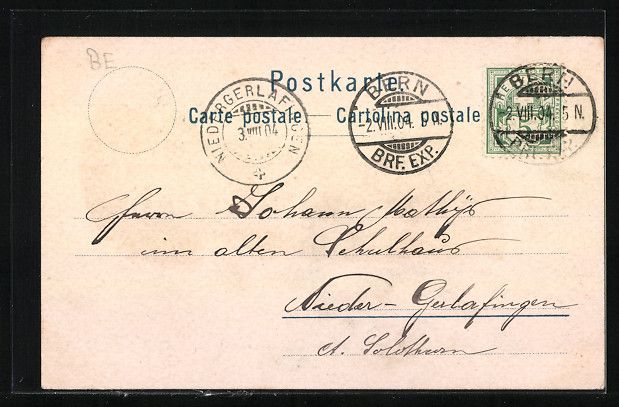 BE
Postkarte.
Carte postale. Cartolina postale
NIEDERGERLAFINGEN
3.VIII.04
4
BERN
-2.VIII.04. 5
BRF. EXP.
BERN
-2.VIII.04. 5 N.
BRF. EXP.
5
Herrn Johann Mathÿs
im alten Schulhaus
Nieder-Gerlafingen
Ct. Solothurn